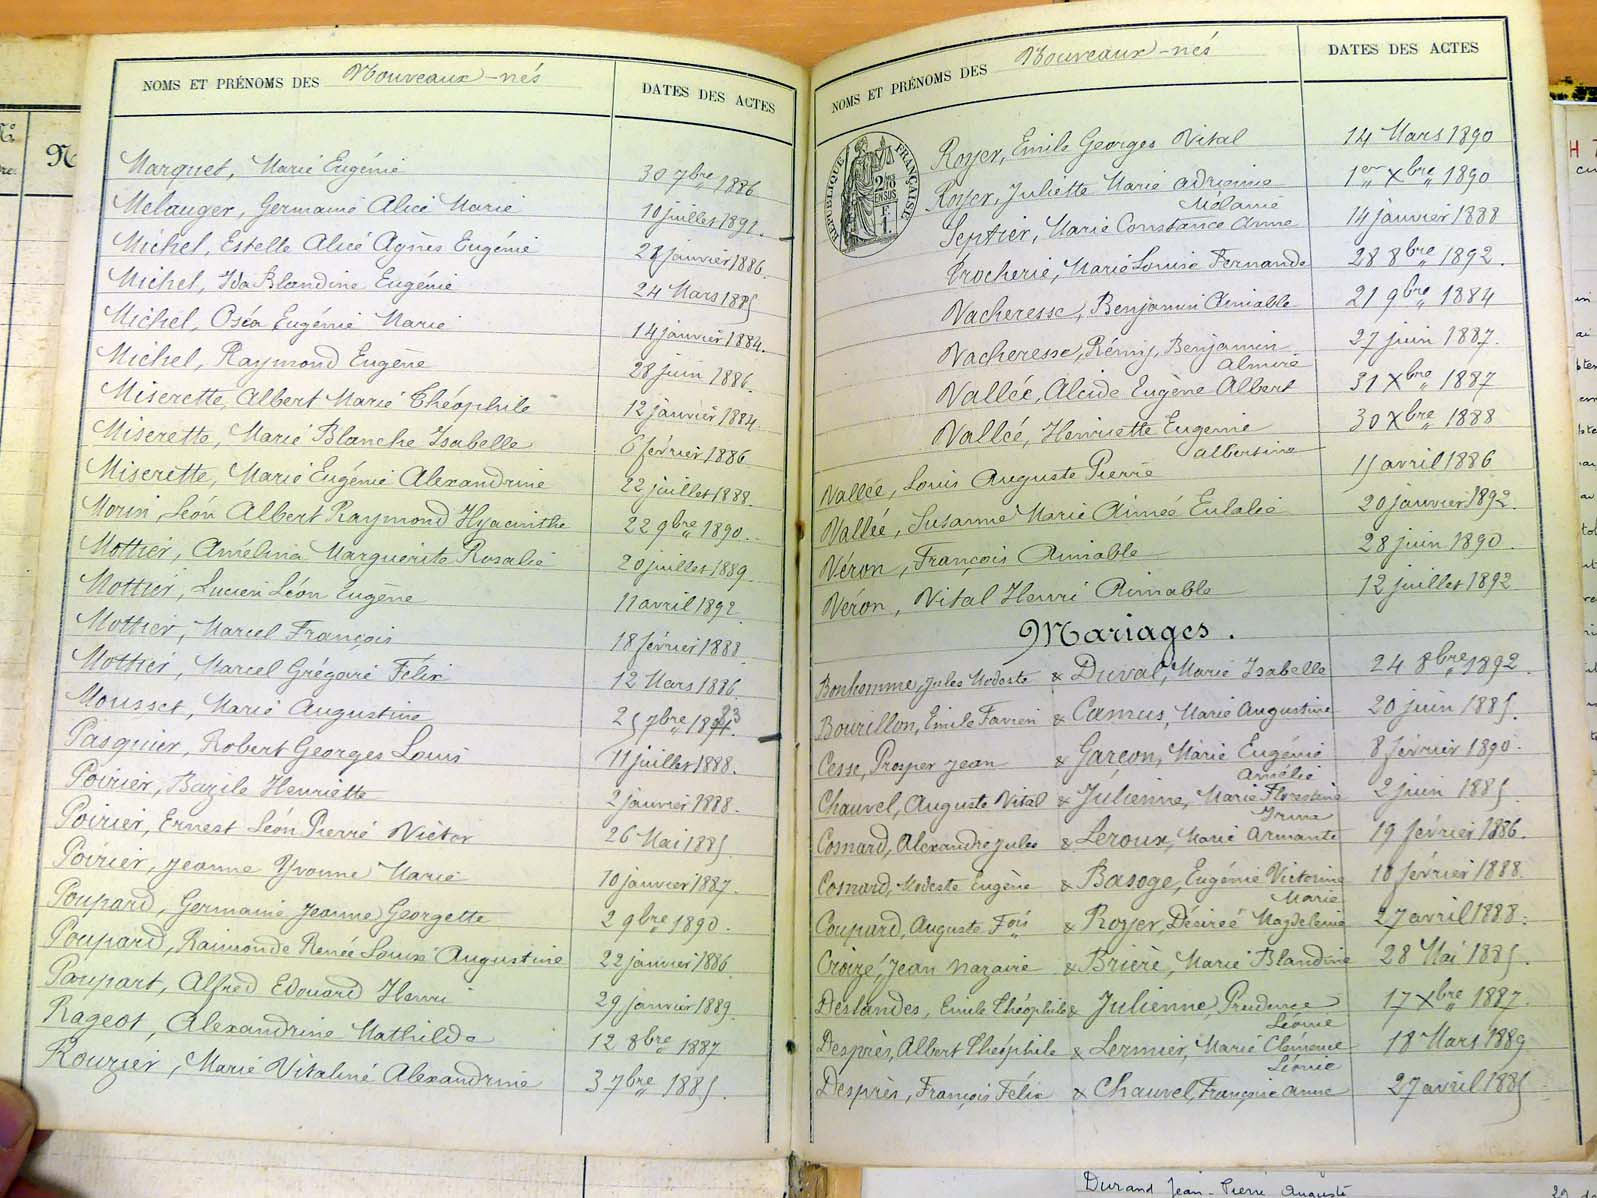 NOMS ET PRÉNOMS DES Nouveaux-nés DATES DES ACTES
Marquet, Marie Eugénie 30 7bre 1886
Melauger, Germaine Alice Marie 10 juillet 1891.
Michel, Estelle Alice Agnès Eugénie 28 janvier 1886.
Michel, Ida Blandine Eugénie 24 Mars 1885
Michel, Oséa Eugénie Marie 14 janvier 1884.
Michel, Raymond Eugène 28 juin 1886.
Miserette, Albert Marie Théophile 12 janvier 1884.
Miserette, Marie Blanche Isabelle 6 février 1886
Miserette, Marie Eugénie Alexandrine 22 juillet 1888.
Morin, Léon Albert Raymond Hyacinthe 22 9bre 1890.
Mottier, Amélina Marguerite Rosalie 20 juillet 1889.
Mottier, Lucien Léon Eugène 11 avril 1892
Mottier, Marcel François 18 février 1888
Mottier, Marcel Grégoire Félix 12 Mars 1886
Mousset, Marie Augustine 25 7bre
Pasquier, Robert Georges Louis 11 juillet 1888.
Poirier, Bazile Henriette 2 janvier 1888.
Poirier, Ernest Léon Pierre Victor 26 Mai 1885.
Poirier, Jeanne Yvonne Marie 10 janvier 1887.
Poupard, Germaine Jeanne Georgette 2 9bre 1890.
Poupard, Raimonde Renée Louise Augustine 22 janvier 1886
Poupart, Alfred Edouard Henri 29 janvier 1889.
Rageot, Alexandrine Mathilde 12 8bre 1887
Rouzier, Marie Vitaline Alexandrine 3 7bre 1885.
NOMS ET PRÉNOMS DES Nouveaux-nés DATES DES ACTES
RÉPUBLIQUE FRANÇAISE
Royer, Emile Georges Vital 14 Mars 1890
Royer, Juliette Marie Adrienne 1er Xbre 1890
Mélanie
Septier, Marie Constance Anne 14 janvier 1888
Trocherie, Marie Louise Fernande 28 8bre 1892.
Vacheresse, Benjamin Aimable 21 9bre 1884
Vacheresse, Rémy, Benjamin 27 juin 1887.
Almire
Vallée, Alcide Eugène Albert 31 Xbre 1887
Vallée, Henriette Eugenie 30 Xbre 1888
Albertine
Vallée, Louis Auguste Pierre 15 avril 1886
Vallée, Susanne Marie Aimée Eulalie 20 janvier 1892.
Véron, François Aimable 28 juin 1890.
Véron, Vital Henri Aimable 12 juillet 1892
Mariages.
Bonhomme, Jules Modeste & Duval, Marie Isabelle 24 8bre 1892.
Bourillon, Emile Favien & Camus, Marie Augustine 20 juin 1885.
Cesse, Prosper Jean & Garçon, Marie Eugénie 8 février 1890.
Amélie
Chauvel, Auguste Vital & Julienne, Marie Florestine 2 juin 1885.
Irma
Cosnard, Alexandre Jules & Leroux, Marie Armante 19 février 1886.
Cosnard, Modeste Eugène & Basoge, Eugénie Victorine 18 février 1888.
Marie
Coupard, Auguste Fois & Royer, Désirée Magdeleine 27 avril 1888.
Croizé, Jean Nazaire & Brière, Marie Blandine 28 Mai 1885.
Deslandes, Emile Théophile & Julienne, Prudence 17 Xbre 1887.
Léonie
Desprès, Albert Théophile & Lermier, Marie Clémence 18 Mars 1889
Léonie
Desprès, François Félix & Chauvel, Françoise Anne 27 avril 1885
Durand Jean-Pierre Auguste